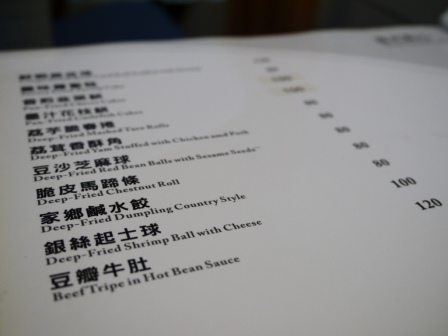 墨汁花枝餅
Pan-Fried Cuttlefish Cakes
荔芋脆春捲
Deep-Fried Mashed Taro Rolls
荔茸香酥角
Deep-Fried Yam Stuffed with Chicken and Pork
豆沙芝麻球
Deep-Fried Red Bean Balls with Sesame Seeds
80
脆皮馬蹄條
Deep-Fried Chestnut Roll
80
家鄉鹹水餃
Deep-Fried Dumpling Country Style
80
銀絲起士球
Deep-Fried Shrimp Ball with Cheese
100
豆瓣牛肚
Beef Tripe in Hot Bean Sauce
120